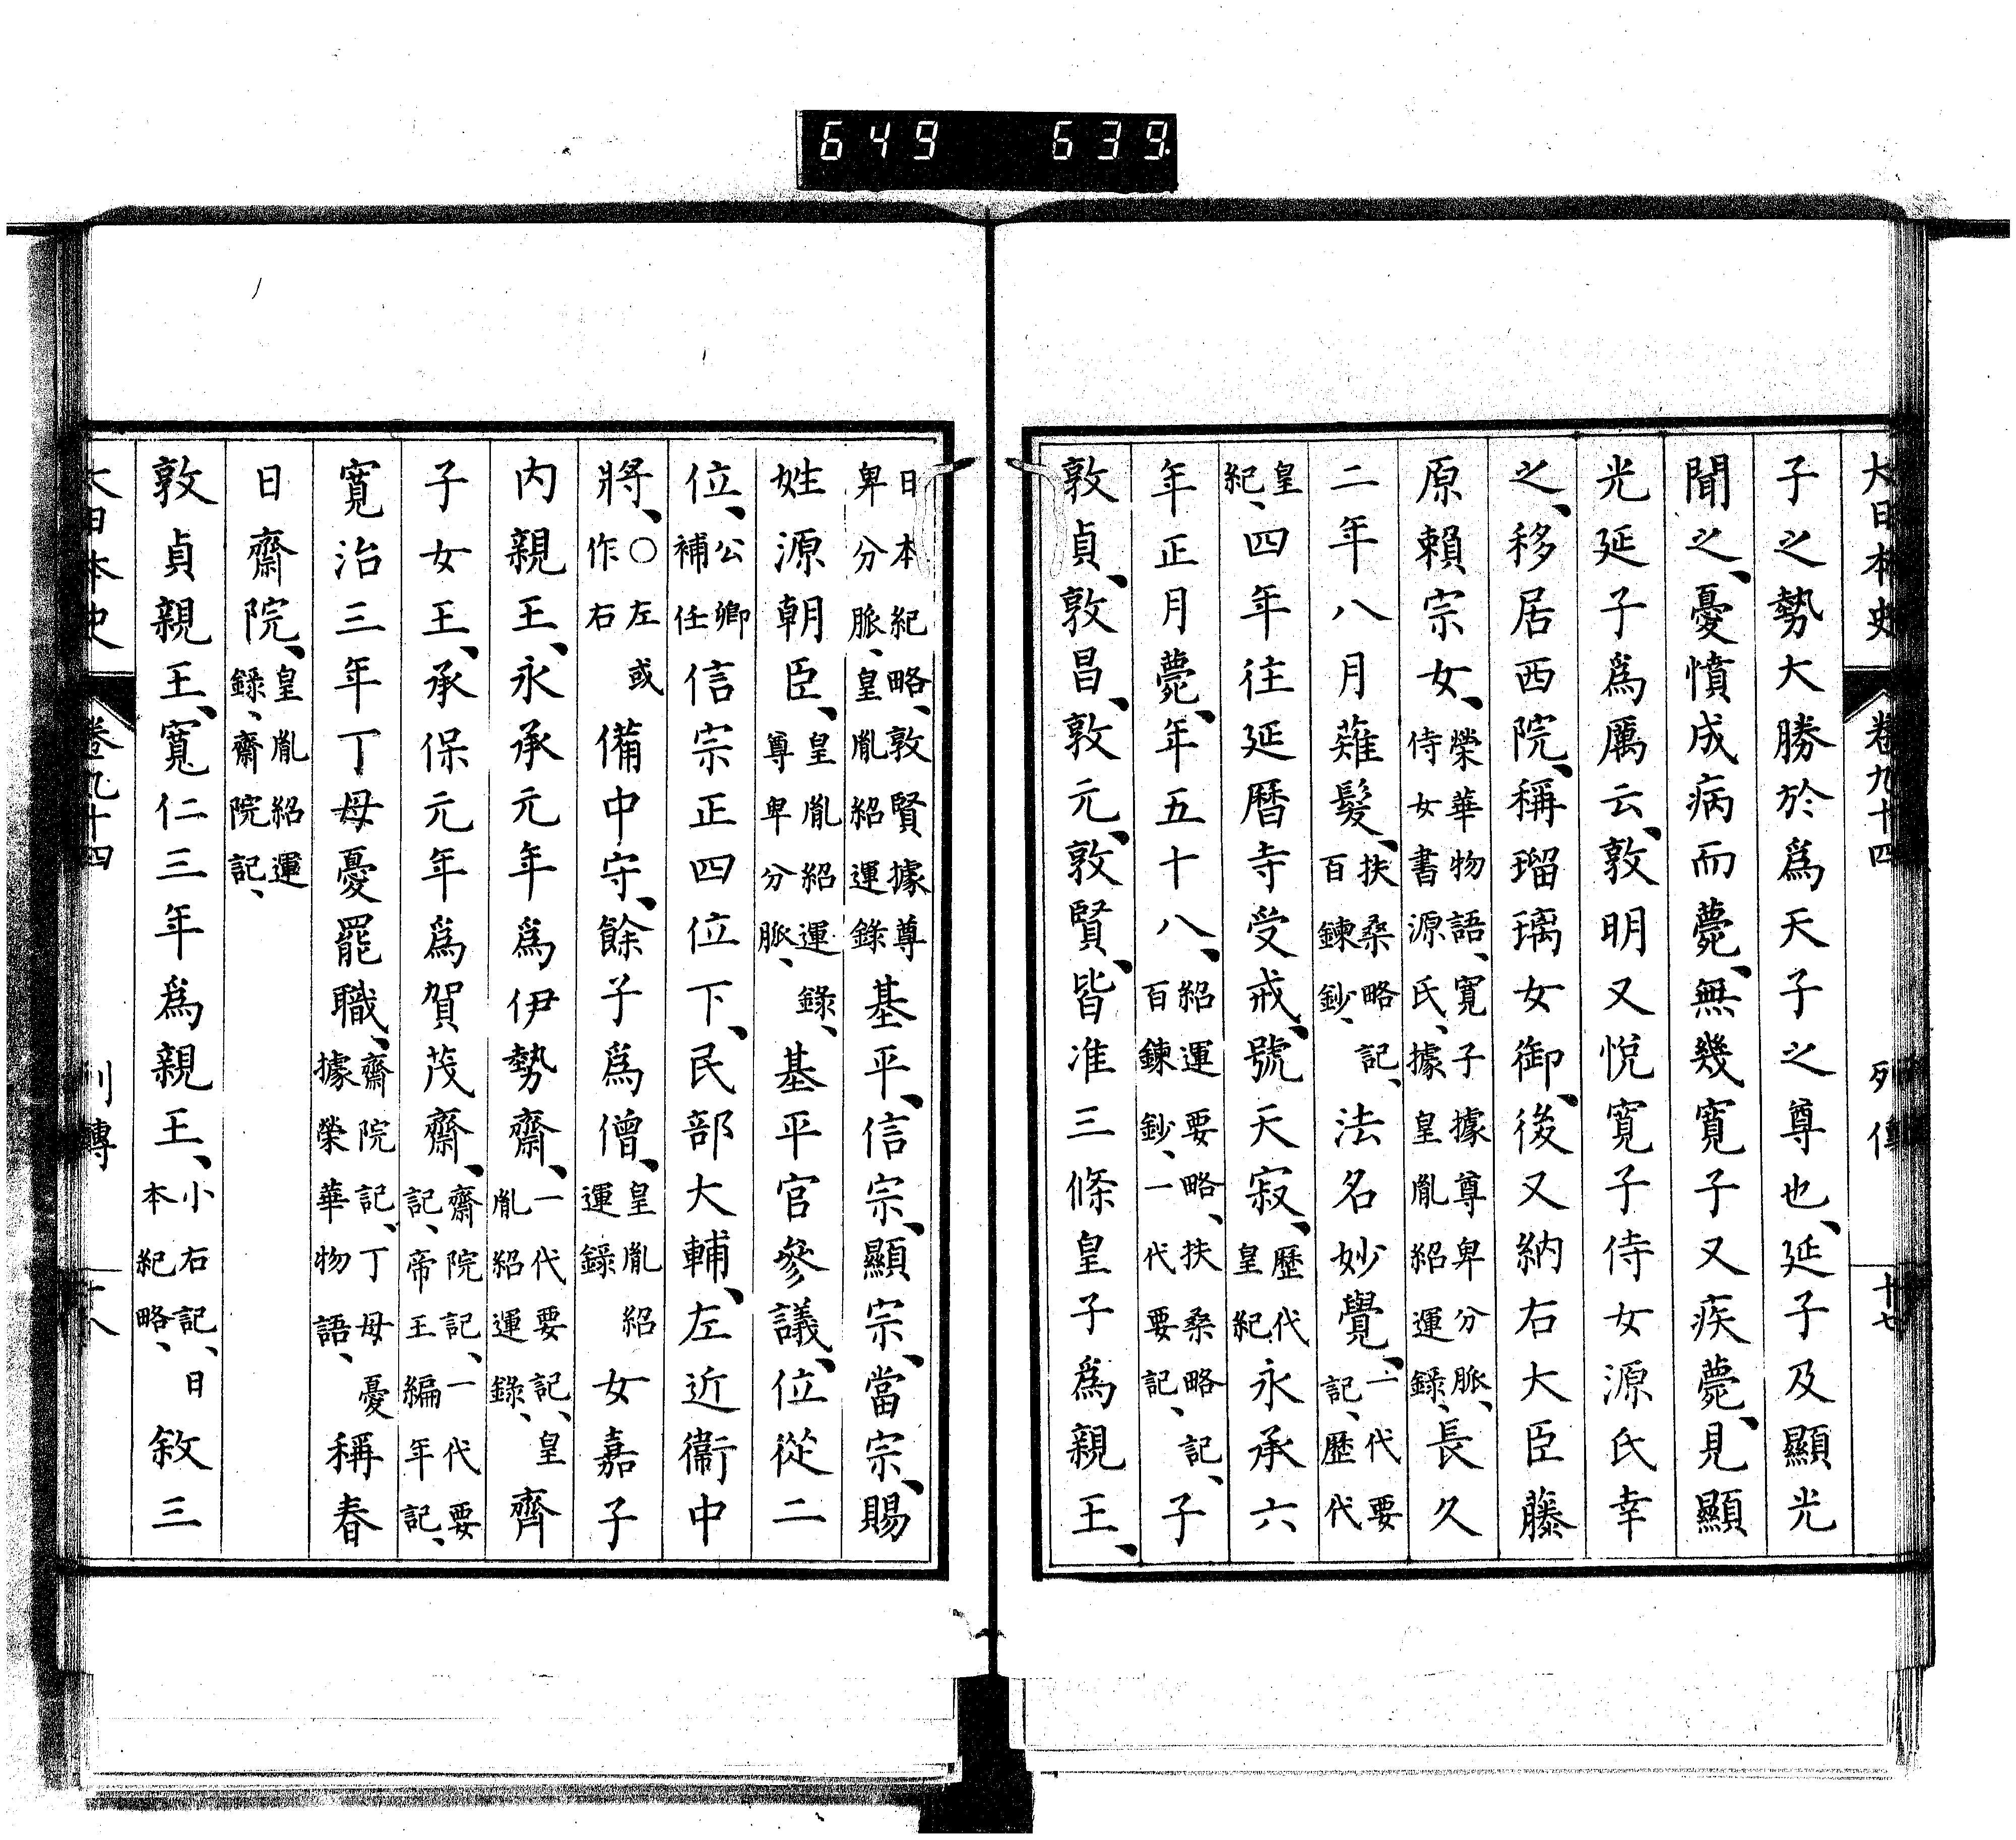 649 639
大日本史 卷九十四 列傳 十七
子之勢大勝於爲天子之尊也、延子及顯光
聞之、憂憤成病而薨、無幾寬子又疾薨、見顯
光延子爲厲云、敦明又悅寬子侍女源氏幸
之、移居西院、稱瑠璃女御、後又納右大臣藤
原賴宗女、榮華物語、寬子據尊卑分脈、侍女書源氏、據皇胤紹運錄、長久
二年八月薙髮、扶桑略記、百鍊鈔、法名妙覺、一代要記、歷代
皇紀、四年往延曆寺受戒、號天寂、歷代皇紀永承六
年正月薨、年五十八、紹運要略、扶桑略記、百鍊鈔、一代要記、子
敦貞、敦昌、敦元、敦賢、皆准三條皇子爲親王、
日本紀略、敦賢據尊卑分脈、皇胤紹運錄基平、信宗、顯宗、當宗、賜
姓源朝臣、皇胤紹運錄、尊卑分脈、基平官參議、位從二
位、公卿補任信宗正四位下、民部大輔、左近衞中
將、○左或作右備中守、餘子爲僧、皇胤紹運錄女嘉子
內親王、永承元年爲伊勢齋、一代要記、皇胤紹運錄、齊
子女王、承保元年爲賀茂齋、齋院記、一代要記、帝王編年記、
寬治三年丁母憂罷職、齋院記、丁母憂據榮華物語、稱春
日齋院、皇胤紹運錄、齋院記、
敦貞親王、寬仁三年爲親王、小右記、日本紀略、敘三
大日本史 卷九十四 列傳 十八